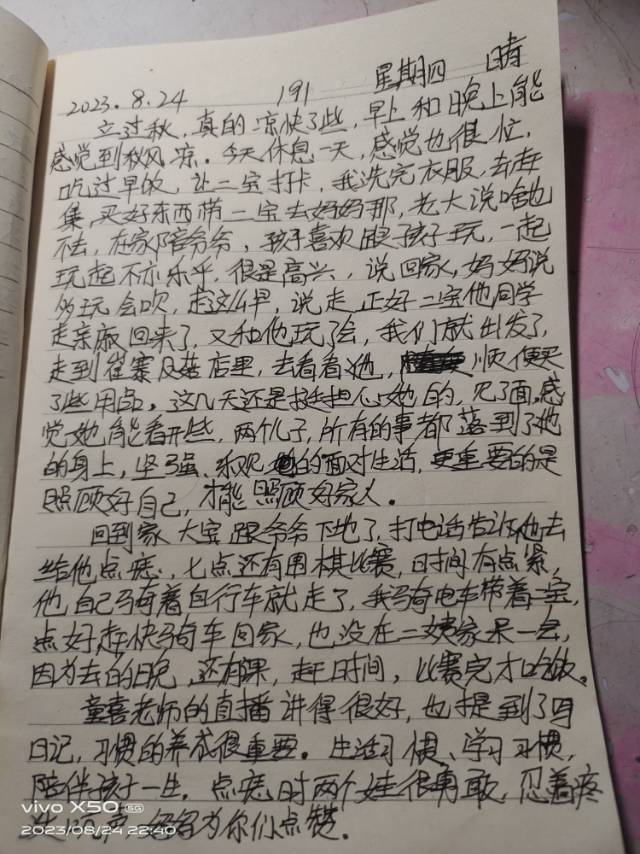 2023.8.24 191 星期四 晴
立过秋，真的凉快了些，早上和晚上能
感觉到秋风凉。今天休息一天，感觉也很忙，
吃过早饭，让二宝打卡，我洗完衣服，去赶
集，买好东西带二宝去妈妈那，老大说啥也
不去，在家陪爷爷，孩子喜欢跟孩子玩，一起
玩起不亦乐乎，很是高兴，说回家，妈妈说
多玩会吹，走这么早，说走正好二宝他同学
走亲戚回来了，又和他玩了会，我们就出发了，
走到崔寨店里，去看看她，顺便买
了些用品。这几天还是挺担心她的，见了面，感
觉她能看开些，两个儿子，所有的事都落到了她
的身上，坚强、乐观的面对生活，更重要的是
照顾好自己，才能照顾好家人。
回到家大宝跟爷爷下地了，打电话告诉他去
给他点痣，七点还有围棋比赛，时间有点紧，
他自己骑着自行车就走了，我骑电车带着二宝，
点好赶快骑车回家，也没在二姨家呆一会，
因为去的晚，还有课，赶时间，比赛完才吃饭。
童喜老师的直播讲得很好，也提到了写
日记，习惯的养成很重要。生活习惯、学习习惯，
陪伴孩子一生。点痣时两个娃很勇敢，忍着疼
妈妈为你们点赞。
vivo X50 5G
2023/08/24 22:40